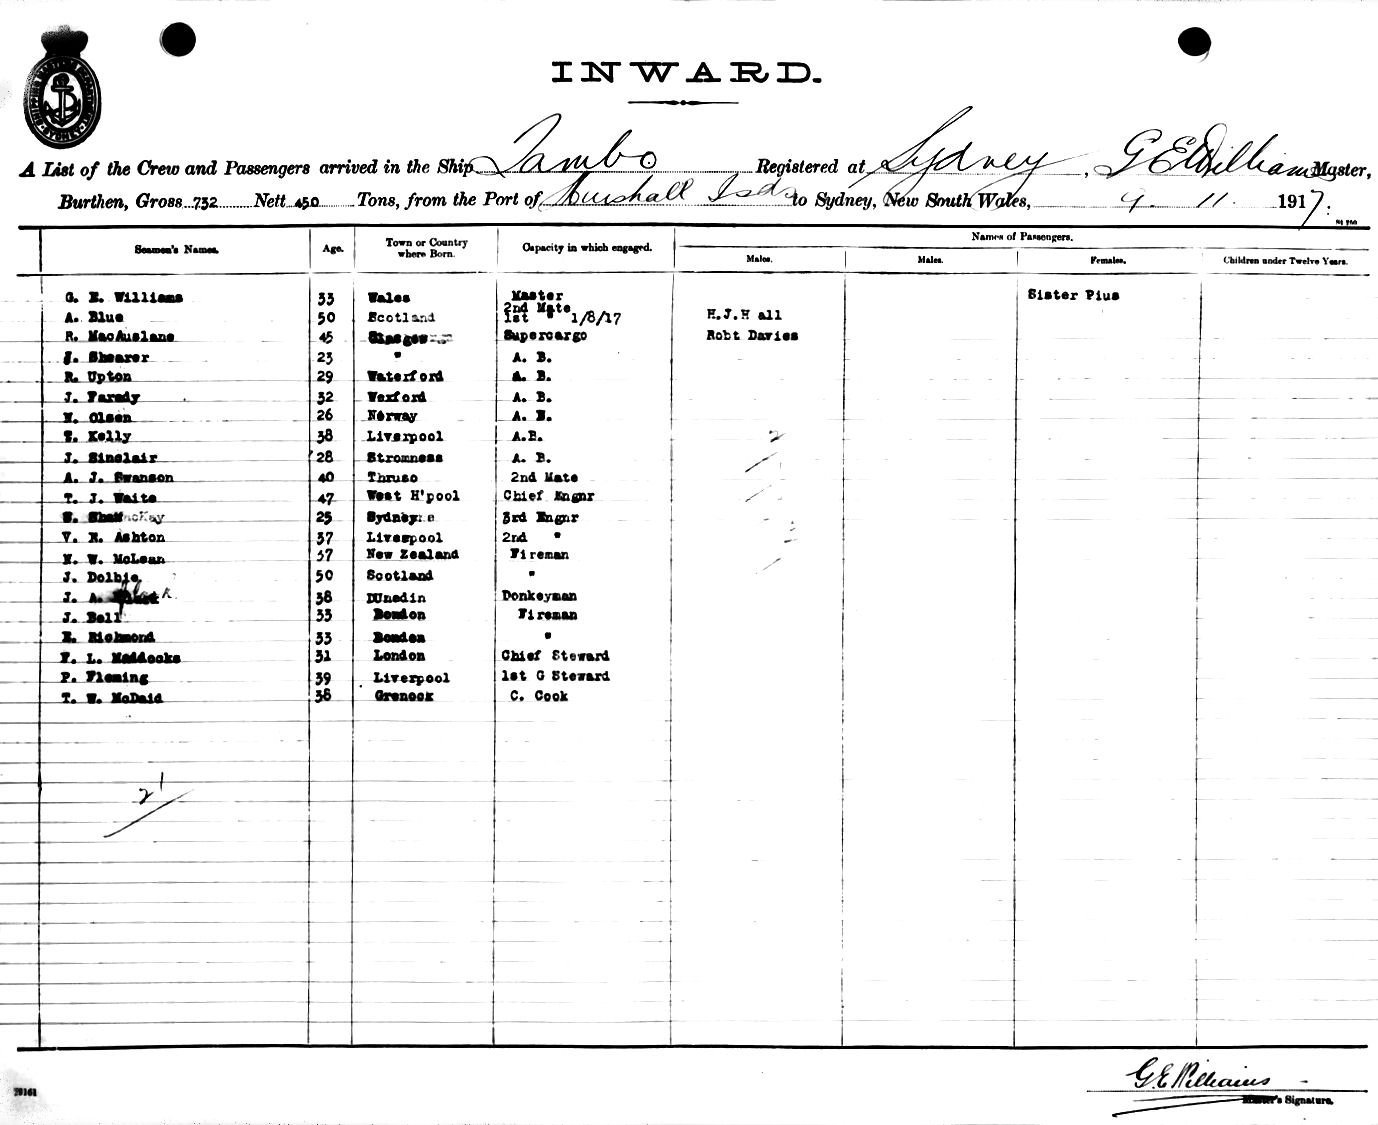 INWARD.
A List of the Crew and Passengers arrived in the Ship Tambo Registered at Sydney, G E Williams Master,
Burthen, Gross 732 Nett 450 Tons, from the Port of Marshall Isds to Sydney, New South Wales, 9. 11. 1917.
Names of Passengers.
Seamen's Names. Age. Town or Country where Born. Capacity in which engaged. Males. Males. Females. Children under Twelve Years.
G. E. Williams 33 Wales Master Sister Pius
2nd Mate
A. Blue 50 Scotland 1st " 1/8/17 H.J.H all
R. MacAuslane 45 Glasgow Supercargo Robt Davies
J. Shearer 23 " A. B.
R. Upton 29 Waterford A. B.
J. Farady 32 Wexford A. B.
N. Olsen 26 Norway A. B.
T. Kelly 38 Liverpool A.B.
2
J. Sinclair 28 Stromness A. B.
A. J. Swanson 40 Thruso 2nd Mate
T. J. Waite 47 West H'pool Chief Engnr
MacKay 25 Sydney 3rd Engnr
V. R. Ashton 37 Liverpool 2nd "
N. W. McLean 37 New Zealand Fireman
J. Dolbie 50 Scotland "
J. A. 38 DUnedin Donkeyman
J. Bell 33 Fireman
E. Richmond 33 "
F. L. Maddocks 31 London Chief Steward
P. Fleming 39 Liverpool 1st G Steward
T. W. McDaid 38 Grenock C. Cook
21
G E Williams
Master's Signature.